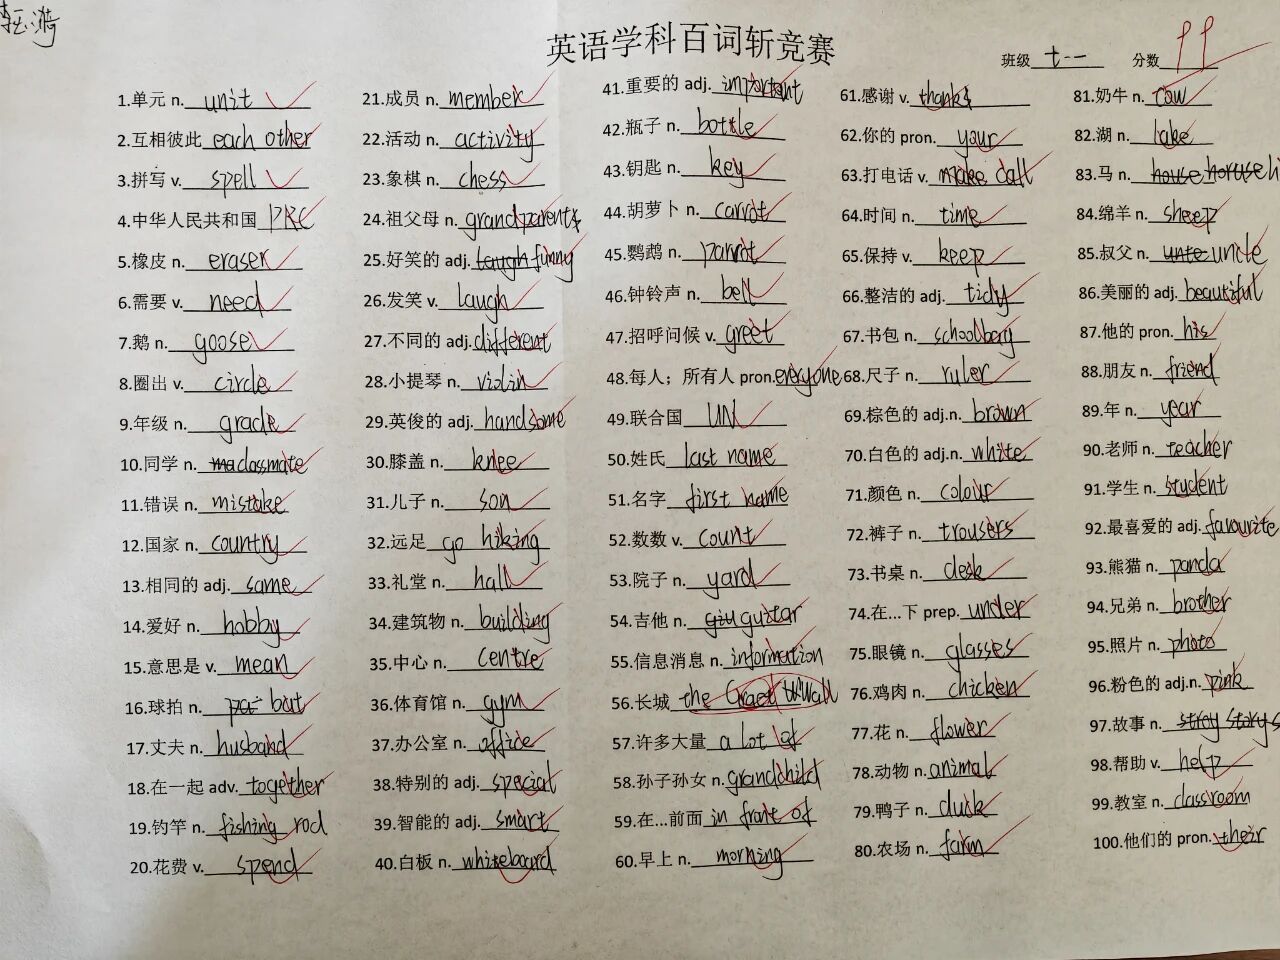 英语学科百词斩竞赛
班级 七.一 分数 99
1.单元 n. unit
2.互相彼此 each other
3.拼写 v. spell
4.中华人民共和国 PRC
5.橡皮 n. eraser
6.需要 v. need
7.鹅 n. goose
8.圈出 v. circle
9.年级 n. grade
10.同学 n. classmate
11.错误 n. mistake
12.国家 n. country
13.相同的 adj. same
14.爱好 n. hobby
15.意思是 v. mean
16.球拍 n. bat
17.丈夫 n. husband
18.在一起 adv. together
19.钓竿 n. fishing rod
20.花费 v. spend
21.成员 n. member
22.活动 n. activity
23.象棋 n. chess
24.祖父母 n. grandparents
25.好笑的 adj. laugh funny
26.发笑 v. laugh
27.不同的 adj. different
28.小提琴 n. violin
29.英俊的 adj. handsome
30.膝盖 n. knee
31.儿子 n. son
32.远足 go hiking
33.礼堂 n. hall
34.建筑物 n. building
35.中心 n. centre
36.体育馆 n. gym
37.办公室 n. office
38.特别的 adj. special
39.智能的 adj. smart
40.白板 n. whiteboard
41.重要的 adj. important
42.瓶子 n. bottle
43.钥匙 n. key
44.胡萝卜 n. carrot
45.鹦鹉 n. parrot
46.钟铃声 n. bell
47.招呼问候 v. greet
48.每人；所有人 pron. everyone
49.联合国 UN
50.姓氏 last name
51.名字 first name
52.数数 v. count
53.院子 n. yard
54.吉他 n. guitar
55.信息消息 n. information
56.长城 the Graet Wall
57.许多大量 a lot of
58.孙子孙女 n. grandchild
59.在...前面 in front of
60.早上 n. morning
61.感谢 v. thanks
62.你的 pron. your
63.打电话 v. make call
64.时间 n. time
65.保持 v. keep
66.整洁的 adj. tidy
67.书包 n. schoolbag
68.尺子 n. ruler
69.棕色的 adj.n. brown
70.白色的 adj.n. white
71.颜色 n. colour
72.裤子 n. trousers
73.书桌 n. desk
74.在...下 prep. under
75.眼镜 n. glasses
76.鸡肉 n. chicken
77.花 n. flower
78.动物 n. animal
79.鸭子 n. duck
80.农场 n. farm
81.奶牛 n. cow
82.湖 n. lake
83.马 n. house horuse
84.绵羊 n. sheep
85.叔父 n. unte uncle
86.美丽的 adj. beautiful
87.他的 pron. his
88.朋友 n. friend
89.年 n. year
90.老师 n. teacher
91.学生 n. student
92.最喜爱的 adj. favourite
93.熊猫 n. panda
94.兄弟 n. brother
95.照片 n. photo
96.粉色的 adj.n. pink
97.故事 n. stroy story
98.帮助 v. help
99.教室 n. classroom
100.他们的 pron. their